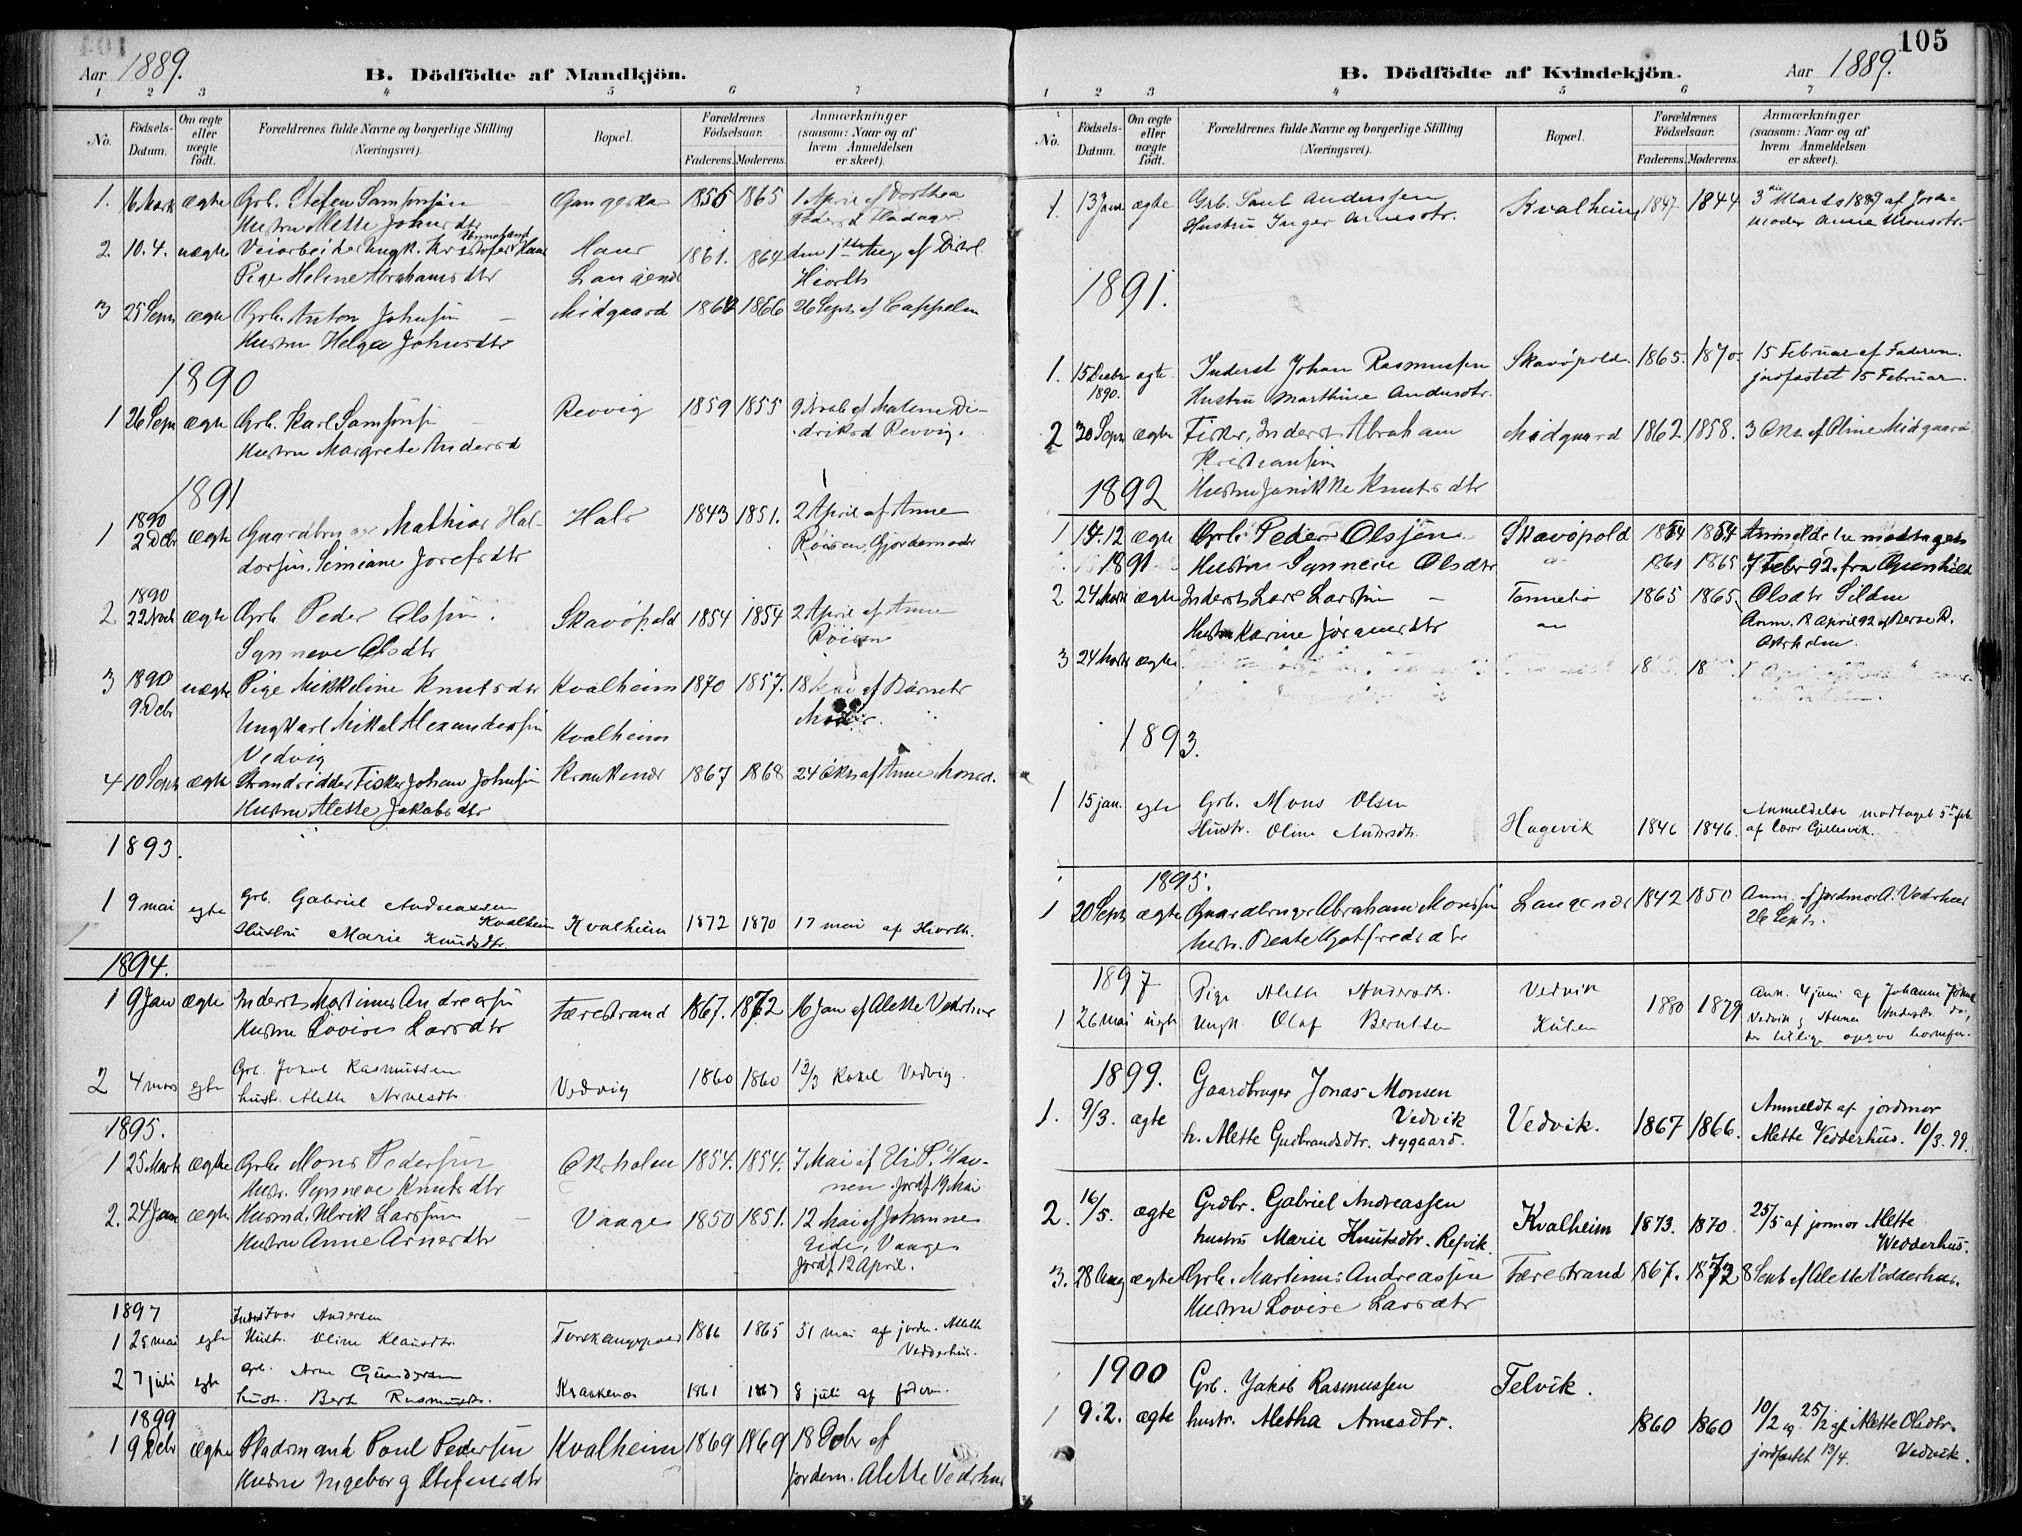 Aar 1889.
B. Dödfödte af Mandkjön.
1 2 3 4 5 6 7
No.
Födsels-
Datum.
Om ægte
eller
uægte
födt.
Forældrenes fulde Navne og borgerlige Stilling
(Næringsvei).
Bopæl.
Forældrenes
Födselsaar.
Faderens. Moderens.
Anmærkninger
(saasom: Naar og af
hvem Anmeldelsen
er skeet).
1. 16 Marts ægte Grb. Stefen Samsonsøn 1855 1865 1 April af Dorthea
Hustru Mette Johnsdtr
2. 10.4. uægte Veiarbeider Ungk. Kristofer Haus 1861. 1864 den 1ste Aug af Distrl.
Pige Heline Abrahamsdtr Langenes Hiorth
3 25 Sept ægte Grb. Anton Johnsøn Midgaard 1866 26 Sept. af Cappelen
Hustru Helga Johnsdtr
1890
1 26 Sept ægte Grb. Karl Samsonsøn Revvig 1859 1855 9 Novb af Malene Di-
Hustru Margrete Andersd driksd Revvig.
1891
1 1890 2 Debr ægte Gaardbruger Mathias Hal- Hals 1843 1851. 2 April af Anne
dorsøn, Simiane Josefsdtr Røisen, Gjordemoder
1890
2 22 Novb ægte Grb. Peder Olssøn. Skavøpold 1854 1854 2 April af Anne
Synneve Olsdtr Røisen
3 1890 uægte Pige Mikkeline Knutsdtr Kvalheim 1870 1857. 18 Mai af Barnets
9 Debr Ungkarl Mikal Alexandersøn Kvalheim Moder.
Vedvig
4 10 Sept ægte Strandsidder Fisker Johan Johnsøn Krakenes 1867 1868 24 Okt af Anne Monsd.
Hustru Alette Jakobsdtr
1893.
1 9 mai egte Grb. Gabriel Andreassen
Kvalheim Kvalheim 1872 1870 17 mai af Hiorth.
Hustru Marie Knudsdtr
1894.
1 9 Jan ægte Inderst Martinus Andreassøn Færestrand 1867. 1872 16 Jan af Alette Vedrhus
Hustru Lovise Larsdtr
2 4 mars egte Grb. Jakob Rasmussen
hustr. Alette Arnesdtr. Vedvig 1860 1860 12/3 Vedvig.
1895.
1 25 Marts ægte Grb. Mons Pedersøn Oksholm 1854. 1854. 7 Mai af Eli P. Hav-
Hustr. Synneve Knutsdtr nen. Jordf 19 Mai
2. 24 Jan ægte Husmd. Ulrik Larssøn Vaage 1850 1851. 12 Mai af Johanne
Hustru Anne Arnesdtr Eide, Vaage.
Jordf 12 April.
1897 Inderst Ivar Andersen
1 25 mai egte Hust. Oline Klausdtr. Torskangerpold 1866 1865 31 mai af jordm. Alette
Vedderhus.
2 7 juli egte Grb. Arne Gundersen
hust. Berte Rasmusdtr. Kraakenes 1861 1867 8 juli af faderen.
1899
1 9 Debr ægte Pladsmand Poul Pedersøn Kvalheim 1869 1869 18 Debr af
Hustru Ingeborg Stefensdtr jordem. Alette Vedrhus
105
B. Dödfödte af Kvindekjön.
Aar 1889.
1 2 3 4 5 6 7
No.
Födsels-
Datum.
Om ægte
eller
uægte
födt.
Forældrenes fulde Navne og borgerlige Stilling
(Næringsvei).
Bopæl.
Forældrenes
Födselsaar.
Faderens. Moderens.
Anmærkninger
(saasom: Naar og af
hvem Anmeldelsen
er skeet).
1. 13 Janr ægte Grb. Paul Anderssen Kvalheim 1847 1844 3die Marts 1889 af Jorde-
Hustru Inger Arnesdtr. moder Anne Monsdtr.
1891.
1. 15 Decbr 1890. ægte Inderst Johan Rasmussen Skavøpold. 1865. 1870. 15 Februar af Faderen.
Hustru Marthine Andersdtr. jordfæstet 15 Februar.
2 30 Sept ægte Fisker, Inderst Abraham Midgaard 1862 1858. 3 Okt af Oline Midgaard
Kristiansøn
1892 Hustru Janikke Knutsdtr
1 14.12 ægte Grb. Peder Olssøn Skavøpold 1854 1854 Anmeldelse modtaget
1891 Hustru Synneve Olsdtr 1861 1865 7 Febr 92. fra Gunhild
2 24 Marts ægte Inderst Lars Larssøn Tennebø 1865 1865 Olsdtr Silden
Hustru Karine Jørgensdtr Anm. 8 April 92 af Berte R.
Oksholm.
3 24 Marts ægte
1893.
1 15 jan. egte Grb. Mons Olsen
Hustr. Oline Andersdtr. Hagevik 1846 1846. Anmeldelse modtaget 5te feb
af Lærer Gjellesvik.
1895.
1 20 Sept ægte Gaardbruger Abraham Monssøn Langenes 1842 1850 Anm. af Jordmor A. Vedrhus
hustr. Beate Gotfredsdtr 26 Sept.
1897 Pige Alette Andersdtr. Vedvik
1 26 mai uægte Ungk. Olaf Berntsen 1880 1879 Anm. 4 juni af Johanne
Vedvik
1899. Gaardbruger Jonas Monsen
Vedvik
1. 9/3. ægte h. Alette Gudbrandsdtr. Nygaard. Vedvik. 1867 1866. Anmeldt af jordmor
Alette Vedderhus. 10/3. 99.
2. 16/5. ægte Grdbr. Gabriel Andreassen Kvalheim 1873. 1870. 25/5 af jormor Alette
hustru Marie Knutsdtr. Refvik. Wedderhus.
3. 28 Aug ægte Grb. Martinus Andreassøn Færestrand 1867. 1872 8 Sept af Alette Vedderhus.
Hustru Lovise Larsdtr
1900 Grb. Jakob Rasmussen Telvik.
1 9.2. ægte hustr. Aletha Arnesdtr. 1860 1860 10/2 og 25/2 af Alette Olsdtr.
jordfæstet 13/4. Vedvik.